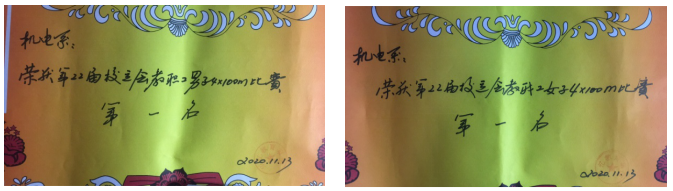 机电系：
荣获第22届校运会教职工男子4×100m比赛
第一名
2020.11.13
机电系：
荣获第22届校运会教职工女子4×100m比赛
第一名
2020.11.13